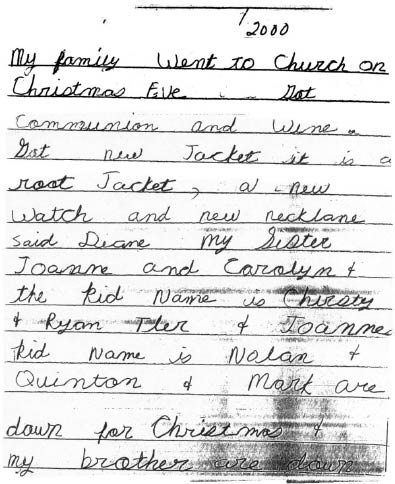 1
2000
My family Went to Church on
Christmas Eve . . Got
Communion and Wine.
Got new Jacket it is a
root Jacket, a new
Watch and new necklane
said Deane My Sister
Joanne and Carolyn &
the Kid Name is Chirsty
& Ryan Tler & Joanne
Kid Name is Nolan &
Quinton & Mark are
down for Christmas &
my brother are down